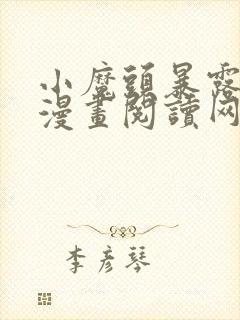 小魔頭暴露
漫畫閱讀网
李彥琴